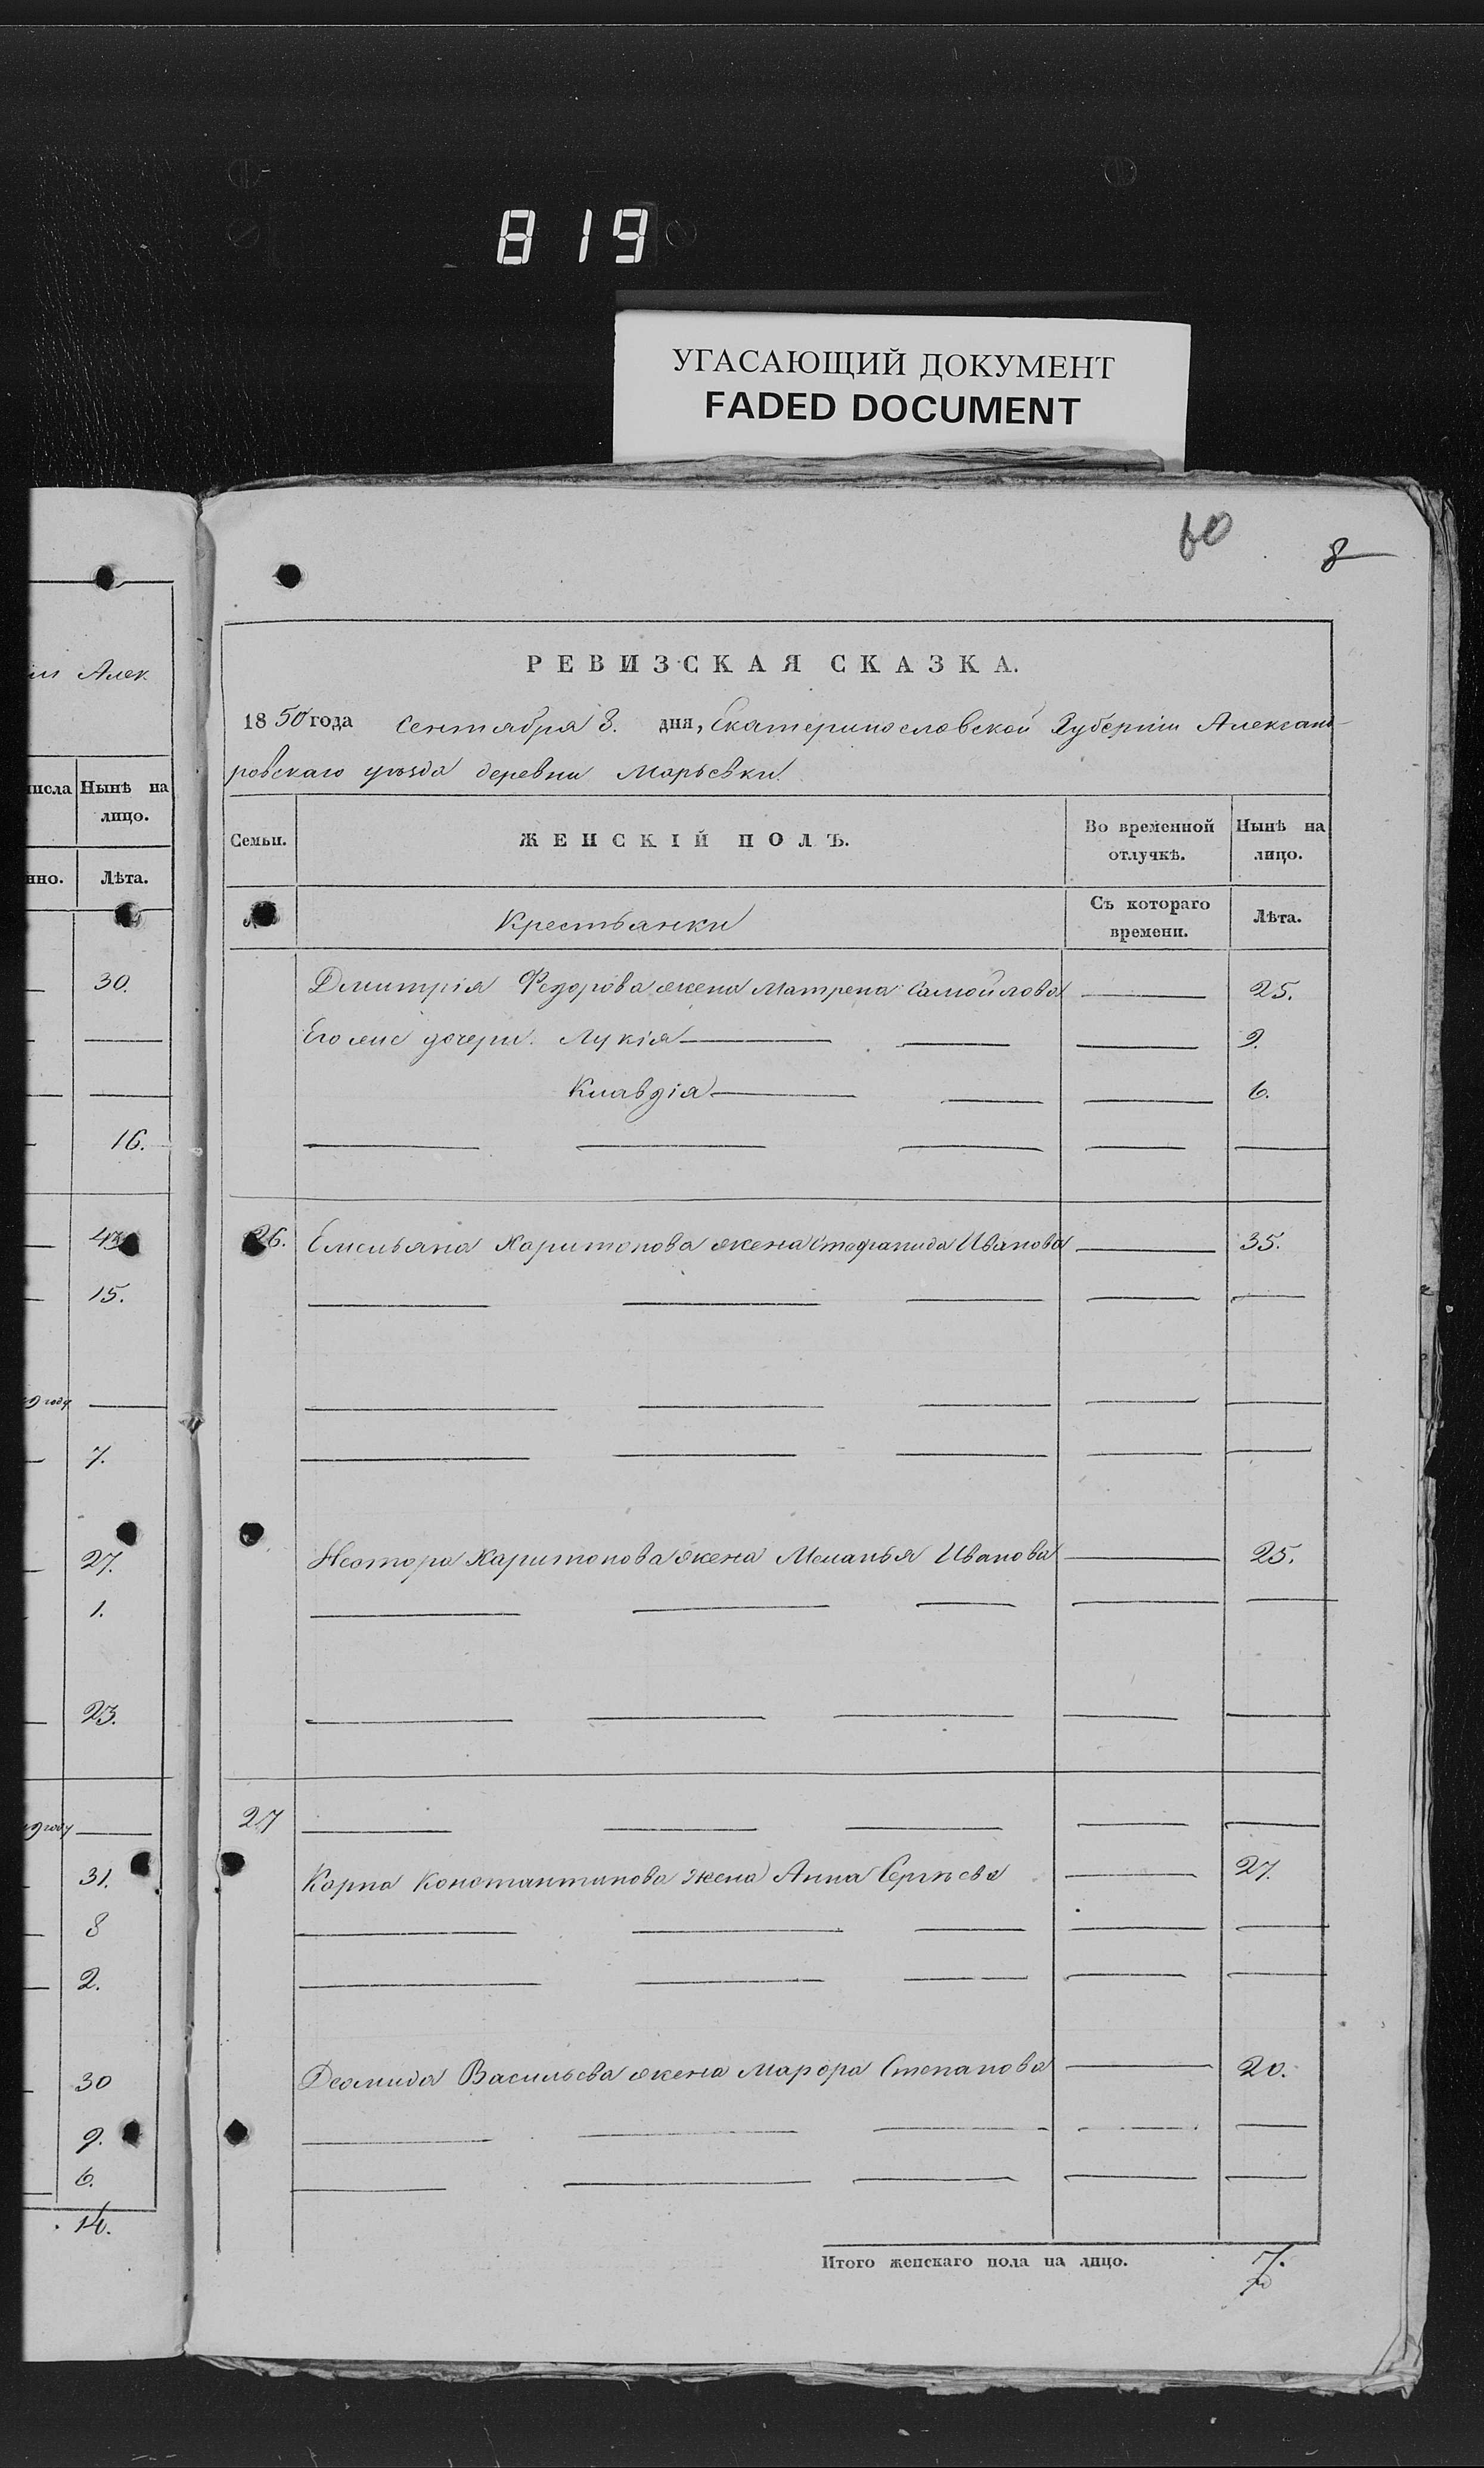 819
УГАСАЮЩИЙ ДОКУМЕНТ
FADED DOCUMENT
60
8
Алек
числа Нынѣ на лицо.
Лѣта.
30.
16.
43
15.
7.
27.
1.
23.
31.
8
2.
30
9.
6.
14.
РЕВИЗСКАЯ СКАЗКА.
1850 года Сентября 8. дня, Екатеринославской Губерніи Александ-
ровскаго уѣзда деревни Марьевки.
Семьи. ЖЕНСКІЙ ПОЛЪ. Во временной отлучкѣ. Нынѣ на лицо.
Крестьянки Съ котораго времени. Лѣта.
Дмитрія Федорова жена Матрена Самойлова 25.
Его же дочери. Лукія 9.
Клавдія 6.
26. Емельяна Харитонова жена Стефанида Иванова 35.
Нестора Харитонова жена Меланья Иванова 25.
27
Карпа Константинова жена Анна Сергѣева 27.
Демида Васильева жена Марфа Степанова 20.
Итого женскаго пола на лицо. 7.